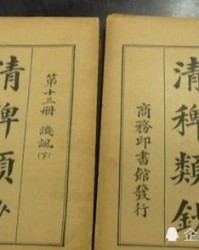 清稗類鈔
第十三冊 譏諷(下)
商務印書館發行
清稗類鈔